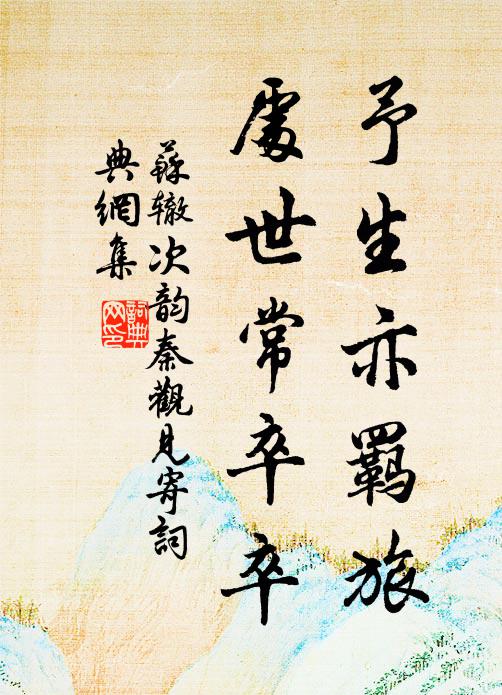 予生亦羁旅
處世常卒卒
蘇辙次韵秦觀見寄詞
典網集
詞典网印